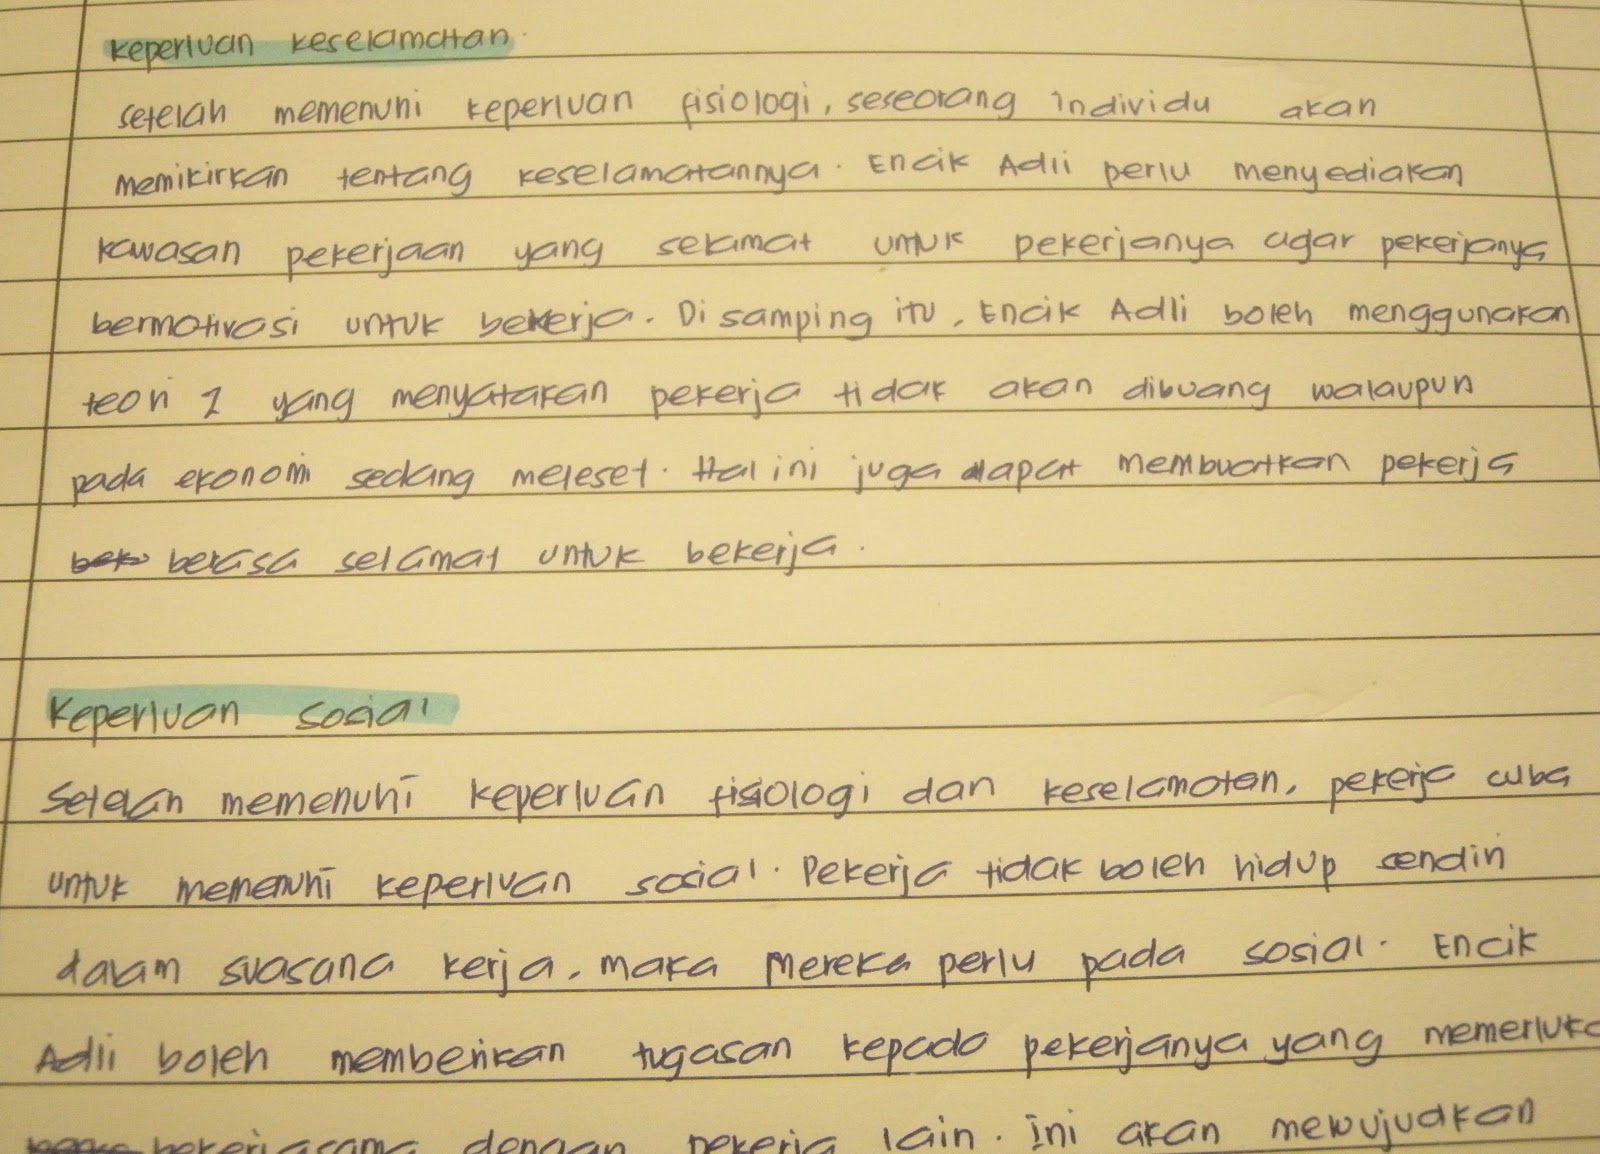 keperluan keselamatan.
setelah memenuhi keperluan fisiologi, seseorang individu akan
memikirkan tentang keselamatannya. Encik Adli perlu menyediakan
kawasan pekerjaan yang selamat untuk pekerjanya agar pekerjanya
bermotivasi untuk bekerja. Di samping itu, Encik Adli boleh menggunakan
teori Z yang menyatakan pekerja tidak akan dibuang walaupun
pada ekonomi sedang meleset. Hal ini juga dapat membuatkan pekerja
berasa selamat untuk bekerja.
Keperluan sosial
Setelah memenuhi keperluan fisiologi dan keselamatan, pekerja cuba
untuk memenuhi keperluan sosial. Pekerja tidak boleh hidup sendiri
dalam suasana kerja, maka mereka perlu pada sosial. Encik
Adli boleh memberikan tugasan kepada pekerjanya yang memerluka
bekerjasama dengan pekerja lain. Ini akan mewujudkan